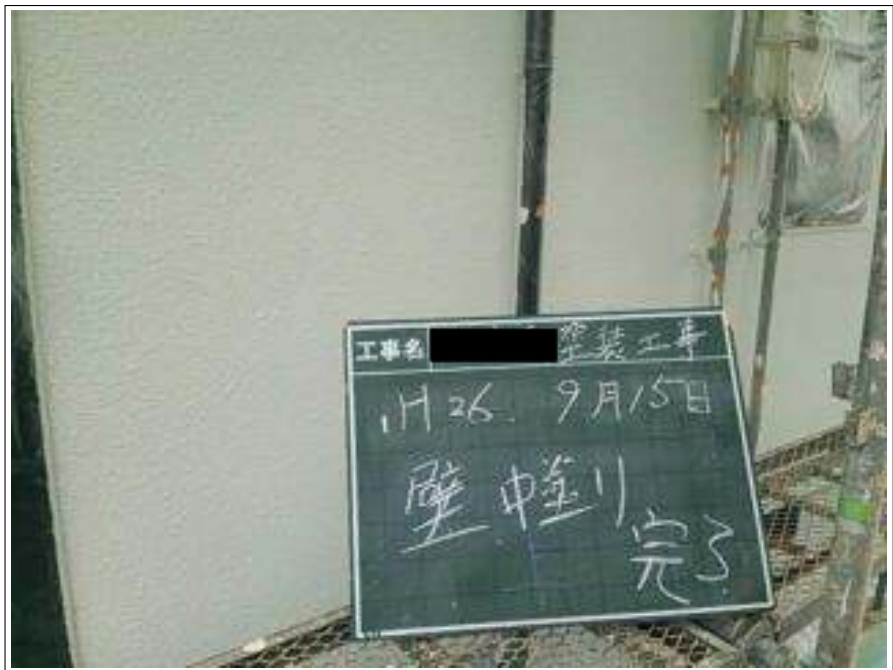 工事名 塗装工事
H26. 9月15日
壁中塗り
完了